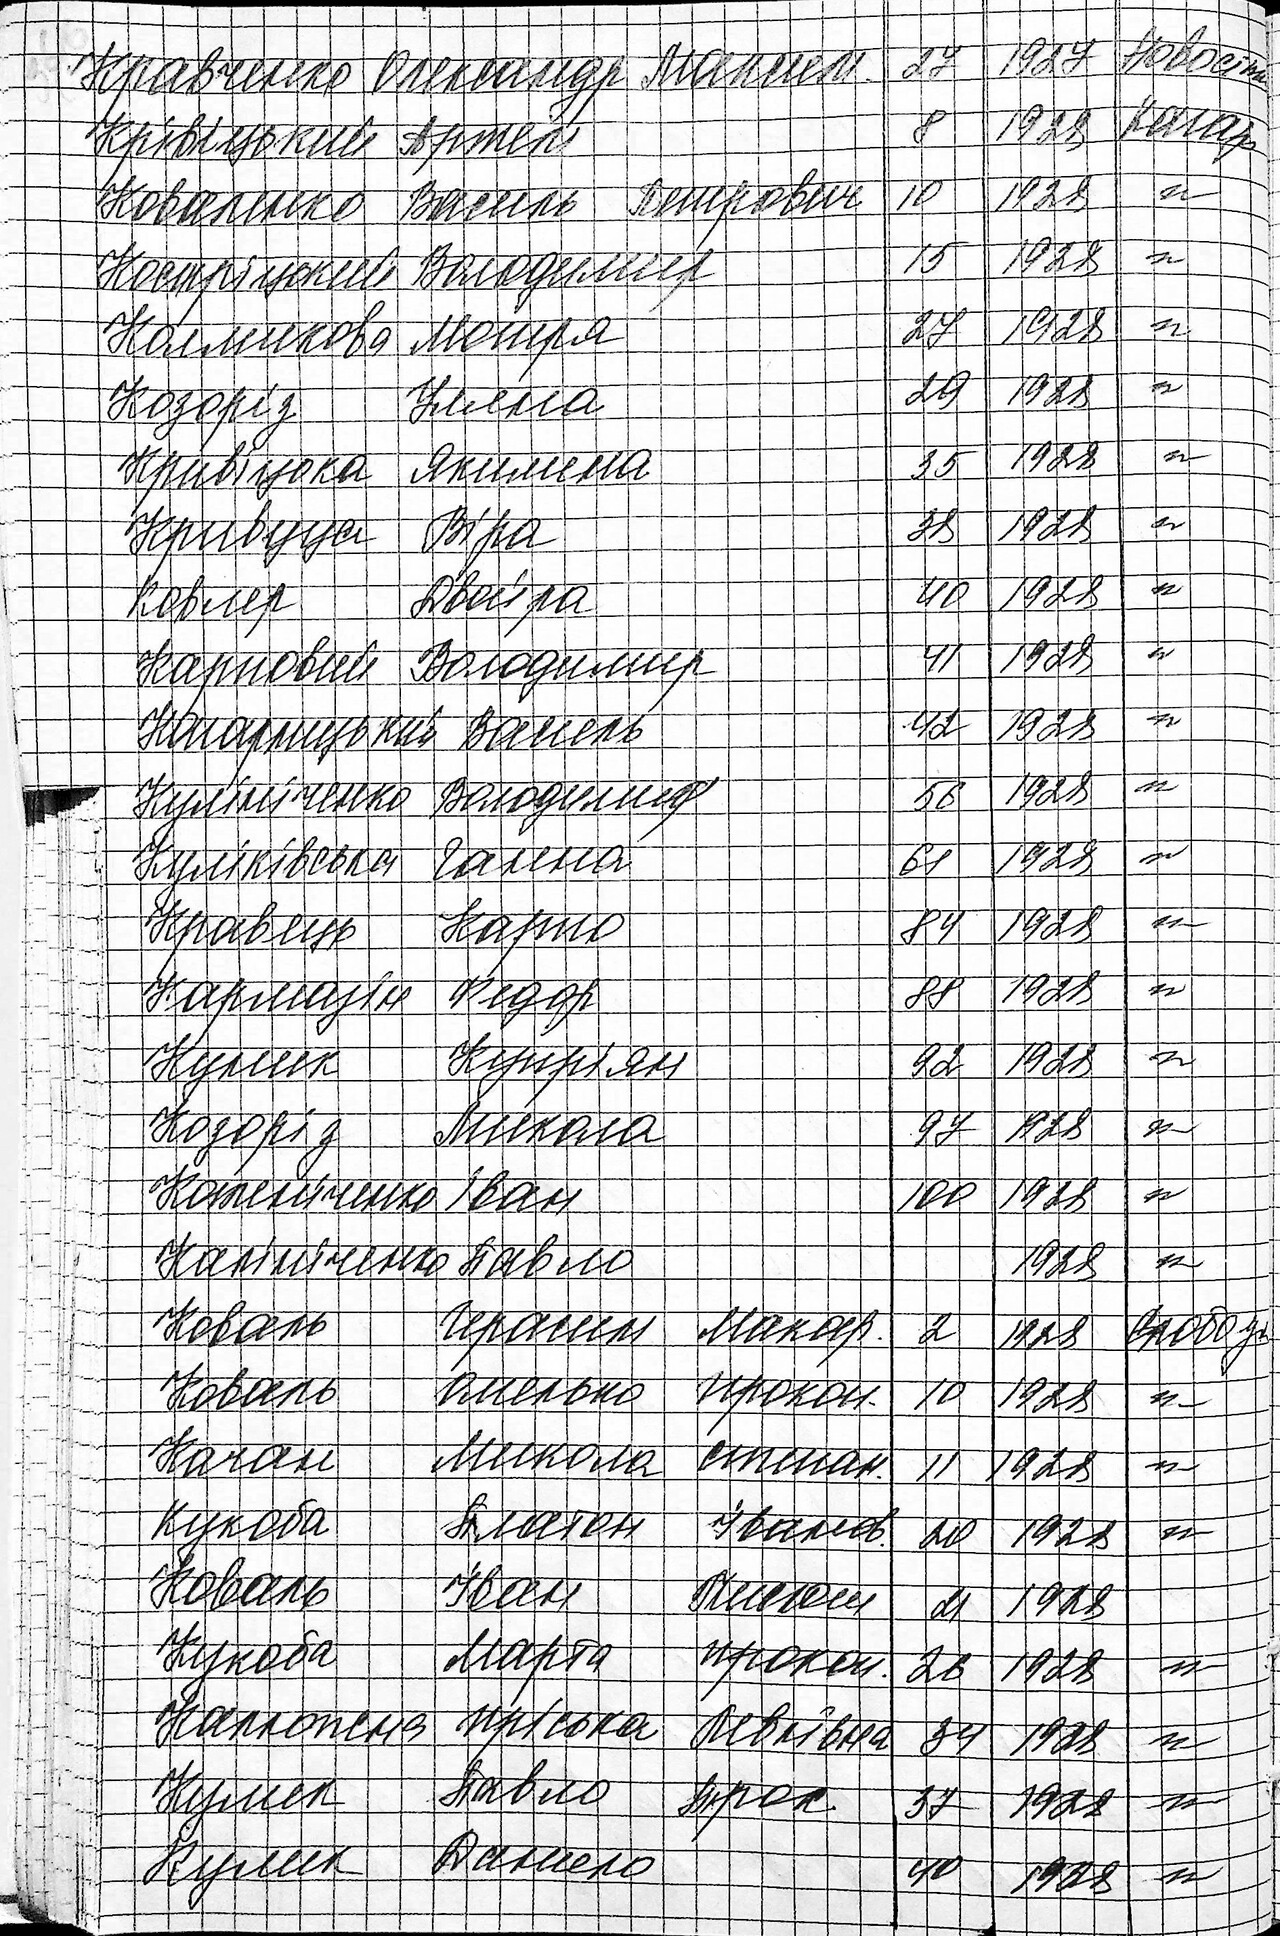 Кравченко Олександр Максим. 27 1927 Новосіл
Крівіцький Артем 8 1928 Кагар
Коваленко Василь Петрович 10 1928 "
Костріцький Володимир 15 1928 "
Колмикова Мотря 27 1928 "
Козоріз Уляна 29 1928 "
Кривіцька Якилина 35 1928 "
Кривуца Віра 38 1928 "
Ковлер Двойра 40 1928 "
Карповий Володимир 41 1928 "
Кагарлицький Василь 42 1928 "
Кулініченко Володимир 56 1928 "
Куліківська Галина 61 1928 "
Кравець Карпо 84 1928 "
Кармазін Федор 88 1928 "
Кулик Купріян 92 1928 "
Козоріз Микола 97 1928 "
Іван 100 1928 "
Калініченко Павло 1928 "
Коваль Герасим Макар. 2 1928
Коваль Омелько Прокоп. 10 1928 "
Качан Микола Степан. 11 1928 "
Кукоба Платон Іванов. 20 1928 "
Коваль Іван 21 1928
Кукоба Марта Прокоп. 26 1928 "
Пріська Левківна 34 1928 "
Кулик Павло 37 1928 "
Кулик Данило 40 1928 "